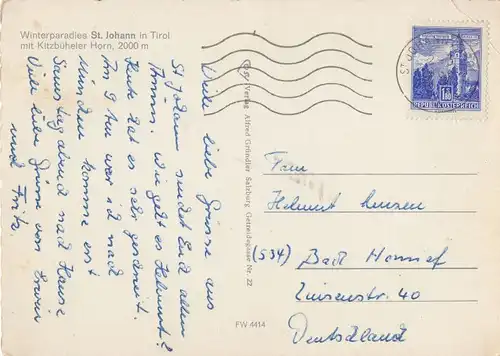 Winterparadies St. Johann in Tirol
mit Kitzbüheler Horn, 2000 m
Viele liebe Grüsse aus
St Johann sendet Euch allen
Wie geht es Helmut?
Heute hat es sehr geschneit.
Am 9 war ich nach
komme erst
Samstag abend nach Hause
Viele liebe Grüsse von Erwin
und Fritz
Verlag Alfred Gründler Salzburg, Getreidegasse Nr. 22
FW 4414
REPUBLIK ÖSTERREICH
1.80
ST. JOH
Helmut
(534) Bad Honnef
40
Deutschland